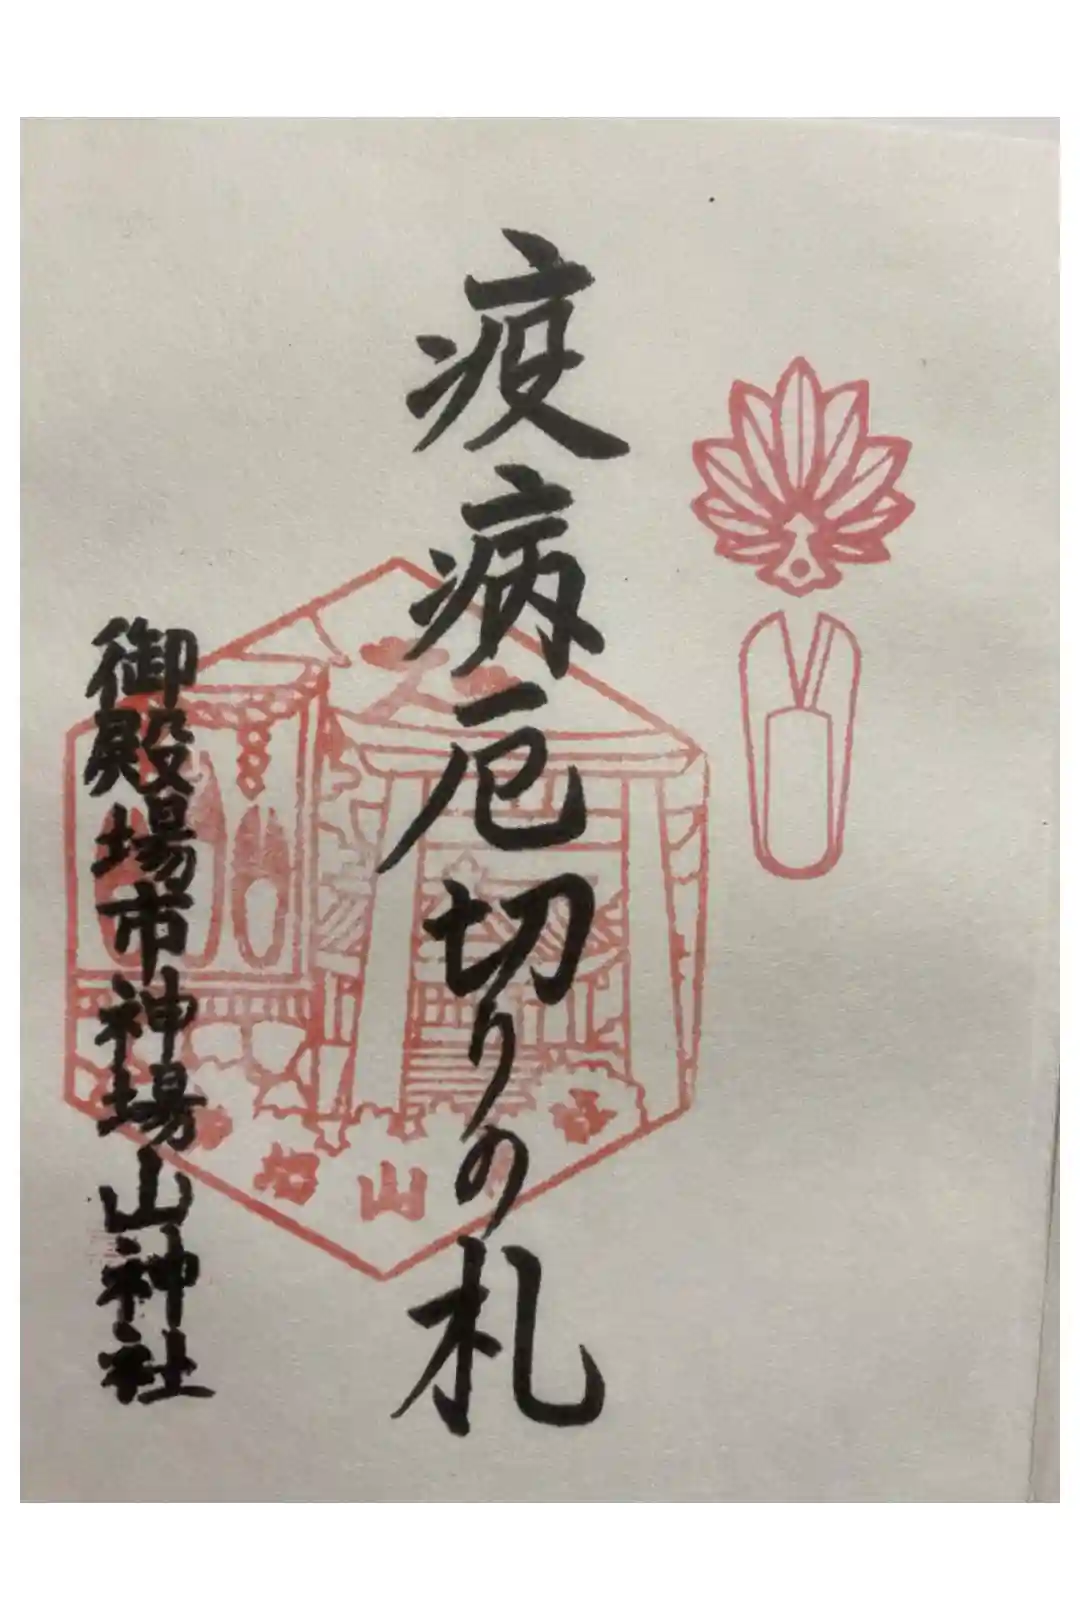 疫病厄切りの札
御殿場市神場山神社
山